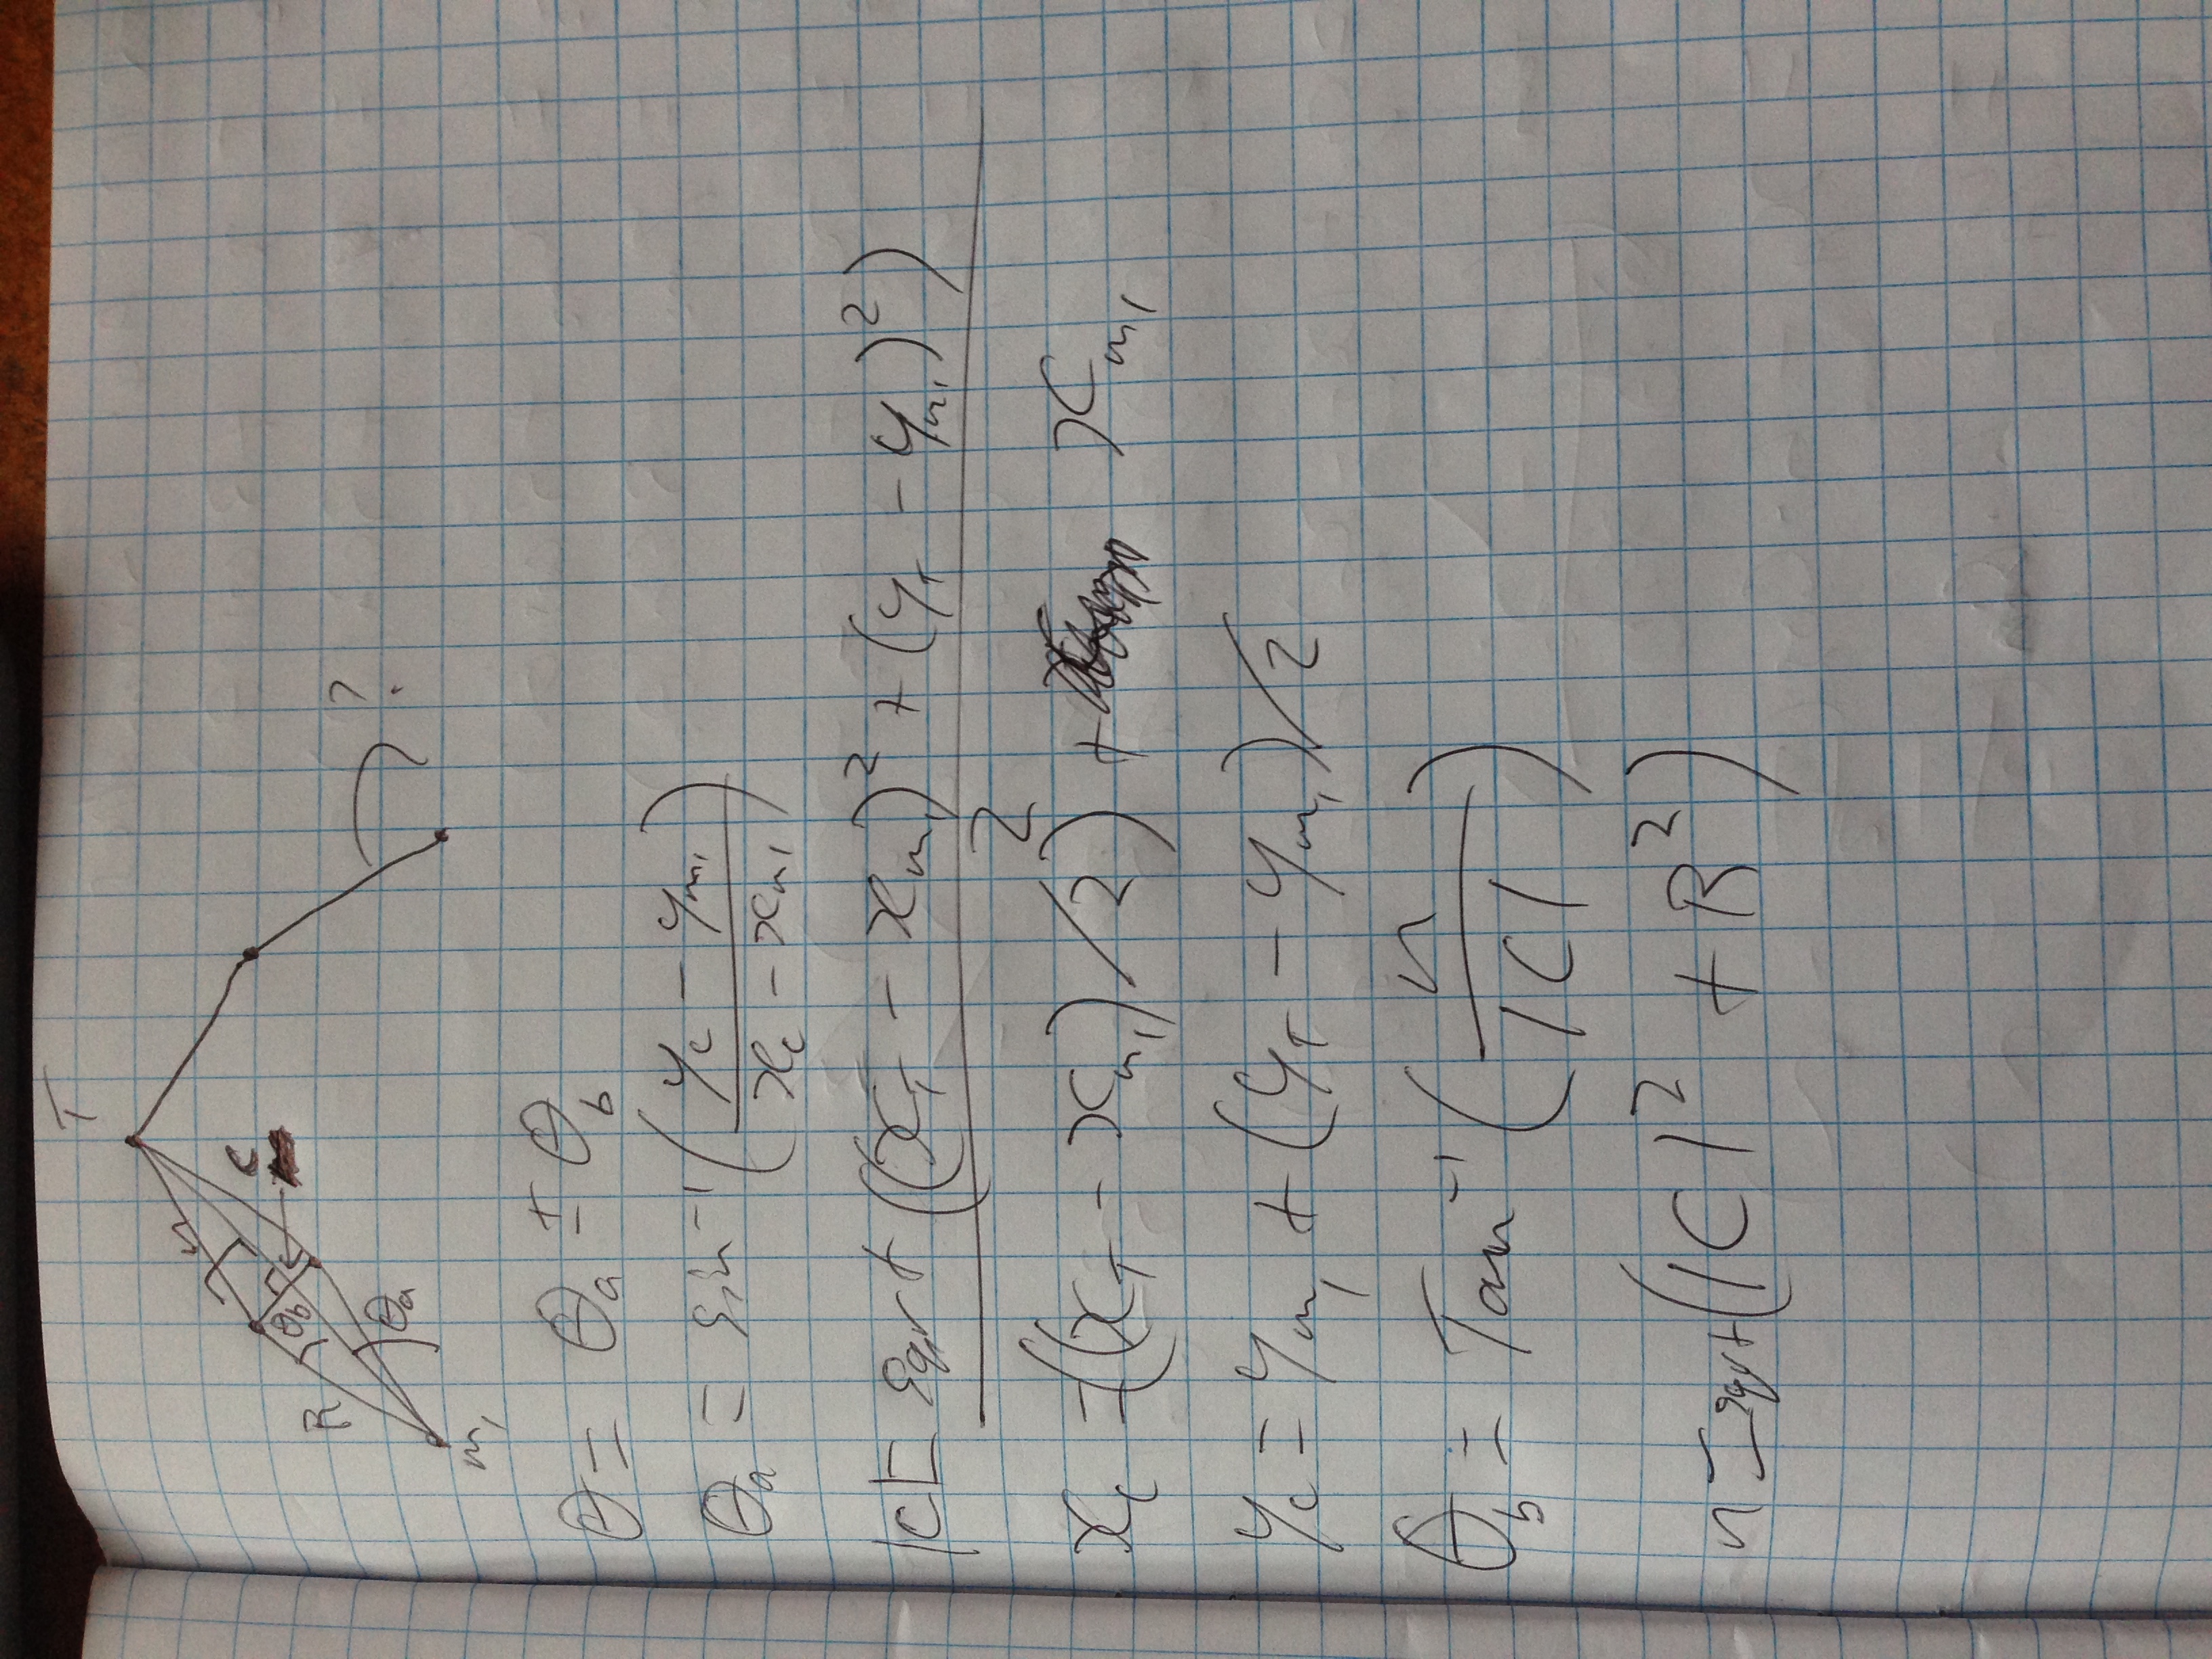 T
n
c
R
θb
θa
?
m₁
θ = θa ± θb
θa = sin⁻¹ ( (yc − ym₁) / (xc − xm₁) )
|C| = sqrt((xT − xm₁)² + (yT − ym₁)²) / 2
xc = ((xT − xm₁)/2) + xm₁
yc = ym₁ + (yT − ym₁)/2
θb = Tan⁻¹ ( n / |C| )
n = sqrt(|C|² + R²)